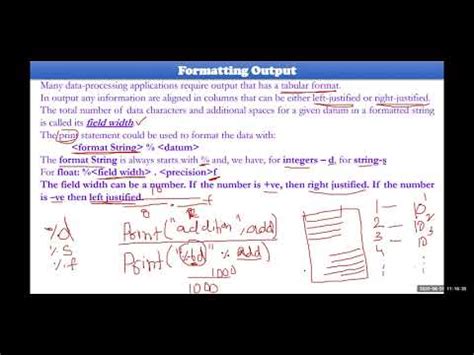 Formatting Output
Many data-processing applications require output that has a tabular format.
In output any information are aligned in columns that can be either left-justified or right-justified.
The total number of data characters and additional spaces for a given datum in a formatted string
is called its field width.
The print statement could be used to format the data with:
<format String> % <datum>
The format String is always starts with % and we, have, for integers – d, for string-s
For float: %<field width> . <precision>f
The field width can be a number. If the number is +ve, then right justified. If the number
is –ve then left justified.
%d
%s
%f
Print("addition", add)
Print("%6d" % add)
1000
1000
1 — 10
2 — 10
3 — 10
4